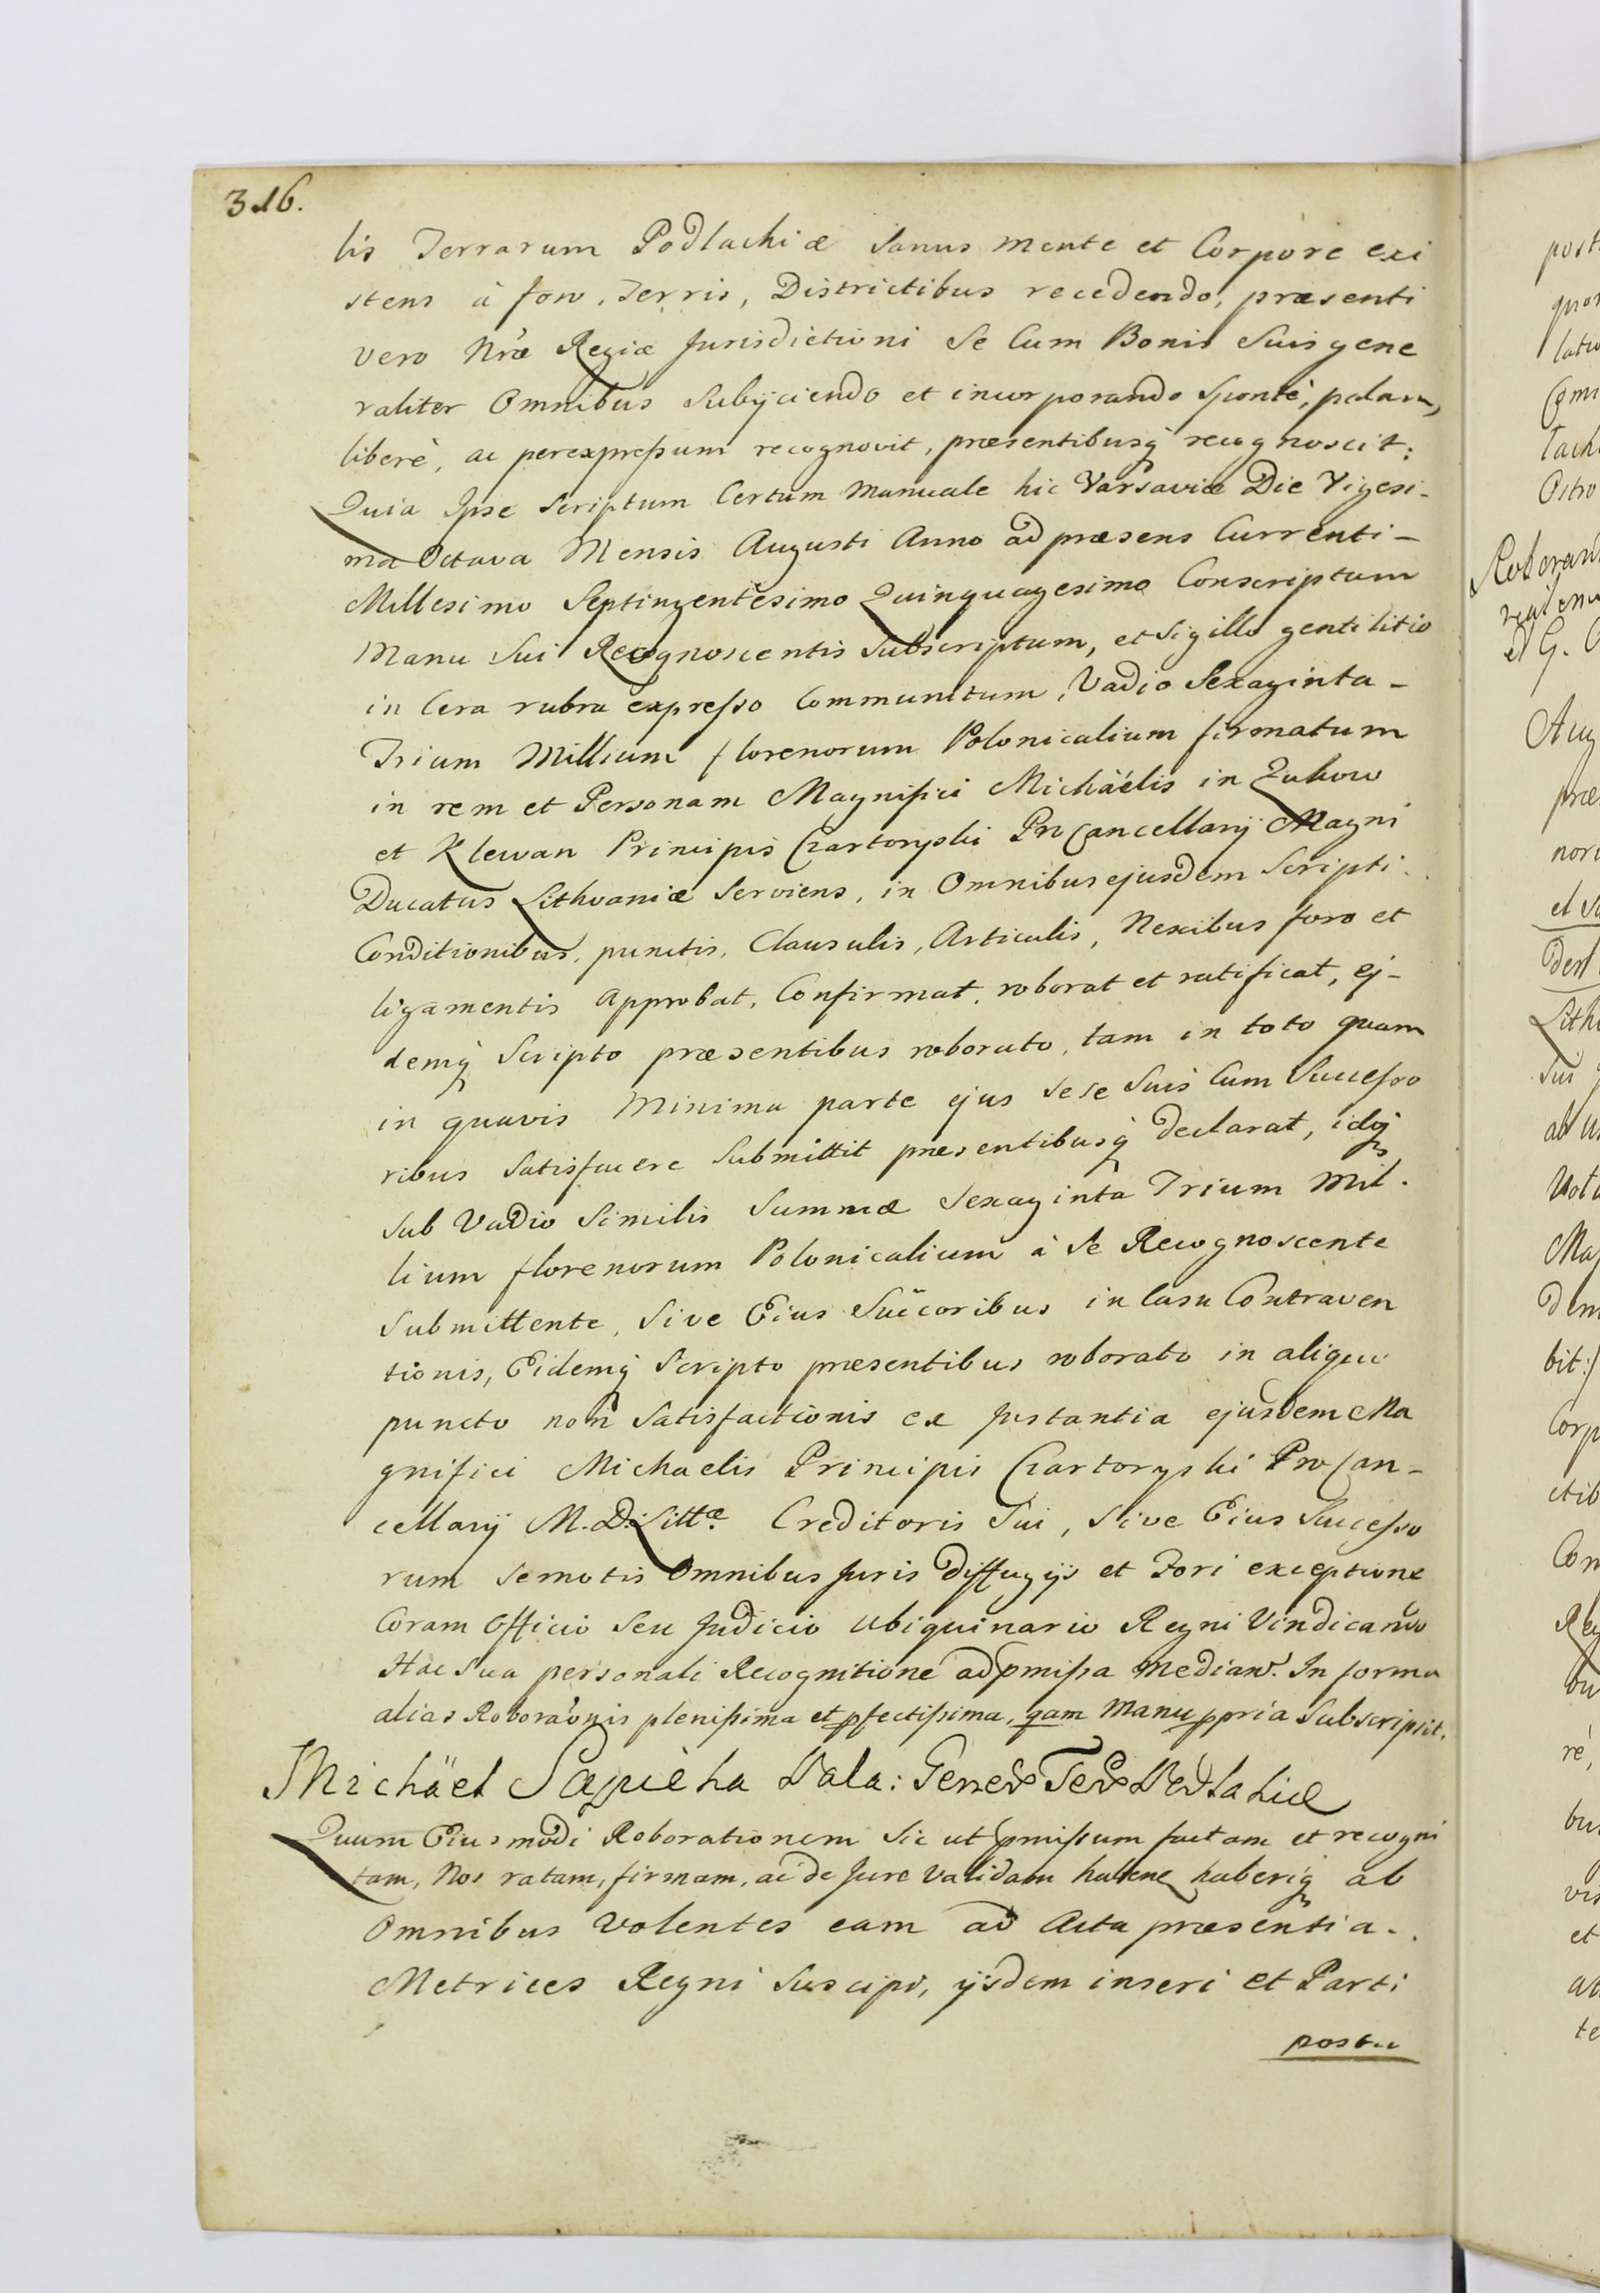 316.
lis Terrarum Podlachiæ Sanus mente et Corpore exi
stens à foro, Terris, Districtibus recedendo, præsenti
vero Nræ Regiæ Jurisdictioni Se Cum Bonis Suis gene
raliter Omnibus Subÿciendo et incorporando Sponte, palam,
liberè, ac perexpressum recognovit, præsentibusq recognoscit:
Quia Ipse Scriptum Certum Manuale hic Varsaviæ Die Vigesi-
ma Octava Mensis Augusti Anno ad præsens Currenti-
Millesimo Septingentesimo Quinquagesimo Conscriptum
Manu Sui Recognoscentis Subscriptum, et Sigillo gentilitio
in Cera rubra expresso Communitum, Vadio Sexaginta-
Trium Millium florenorum Polonicalium firmatum
in rem et Personam Magnifici Michäelis in Zukow
et Klewan Principis Czartoryski Pro Cancellarÿ Magni
Ducatus Lithvaniæ Serviens, in Omnibus ejusdem Scripti
Conditionibus, punctis, Clausulis, Articulis, Nexibus foro et
ligamentis Approbat, Confirmat, roborat et ratificat, ej-
demq Scripto præsentibus roborato, tam in toto quam
in quavis Minima parte ejus Sese Suis Cum Successo
ribus Satisfacere Submittit præsentibusq declarat, idq
Sub Vadio Similis Summæ Sexaginta Trium Mil-
lium florenorum Polonicalium à Se Recognoscente
Submittente, Sive Eius Succoribus in Casu Contraven
tionis, Eidemq Scripto præsentibus roborato in aliquo
puncto non Satisfactionis ex Instantia ejusdem Ma
gnifici Michaelis Principis Czartoryski Pro Can-
cellarÿ M. D. Littæ Creditoris Sui, Sive Eius Successo
rum Semotis Omnibus Juris Diffugÿs et Fori exceptione
Coram Officio Seu Judicio Ubiquinario Regni Vindicando
Hac Sua personali Recognitione ad pmissa median. In forma
alias Roboraonis plenissima et pfectissima, qam Manu ppria Subscripsit.
Michäel Sapieha Pala: Gener Ter Podlahiæ
Quum Eiusmodi Roborationem Sic ut pmissum factam et recogni
tam, Nos ratam, firmam, ac de Jure Validam habene haberiq ab
Omnibus Volentes eam ad Acta præsentia.
Metrices Regni Suscipi, ÿsdem inseri et Parti
postu